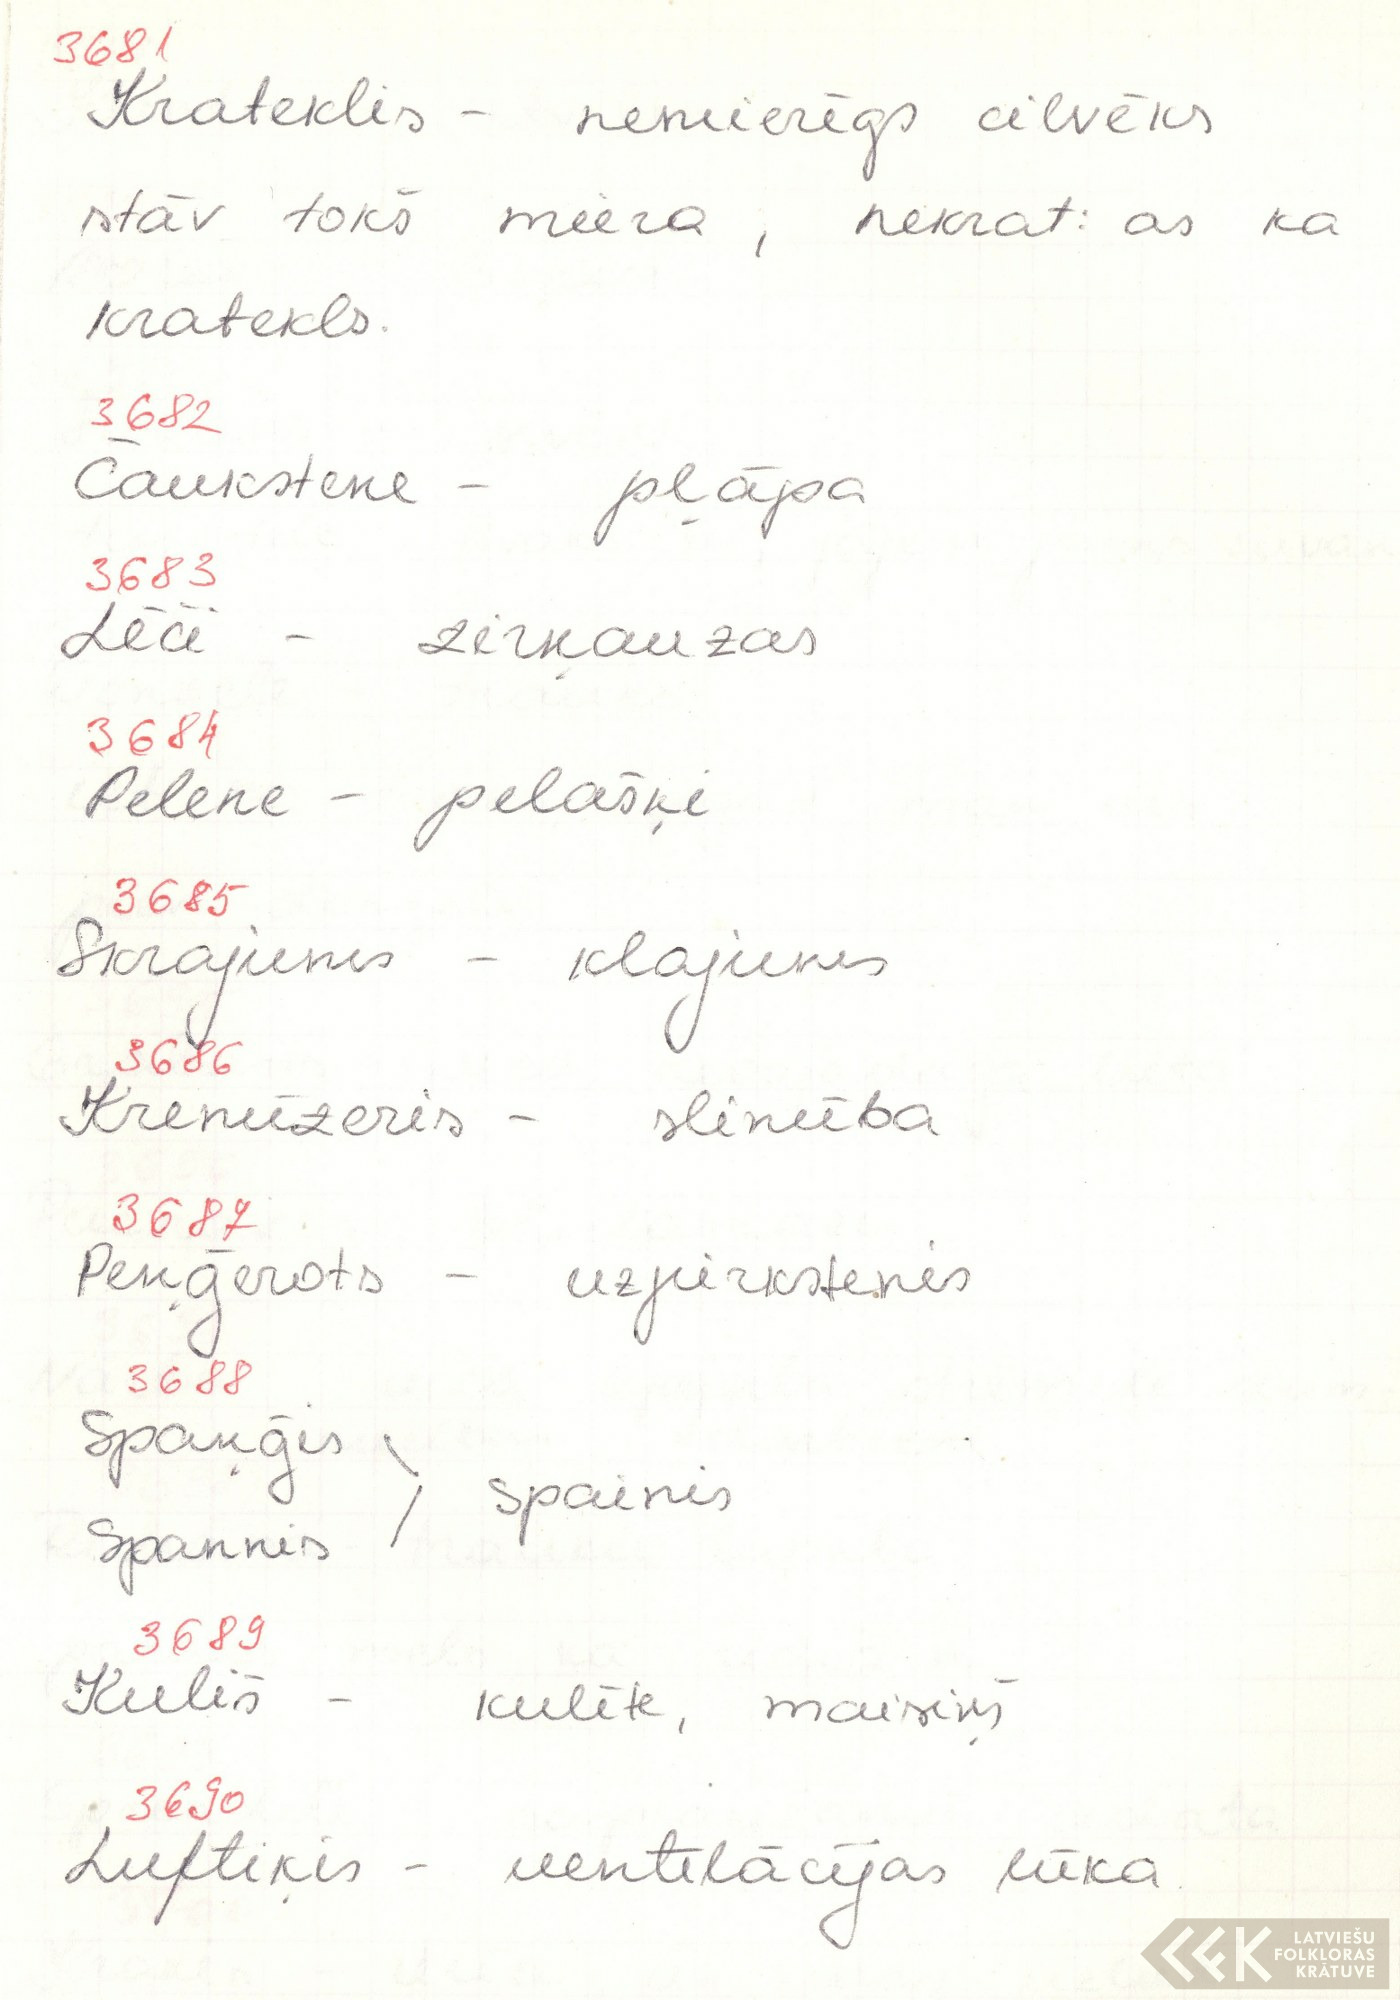 3681
Krateklis - nemierīgs cilvēks
stāv tokš miera, nekrat: as ka
kratekls.
3682
Čaukstene - pļāpa
3683
Lēči - zirņauzas
3684
Pelene - pelašķi
3685
Skrajumis - klajumis
3686
3687
Peņģerots - uzpirkstenis
3688
Spaņģis
Spannis
spainis
3689
Kulīš - kulīte, maisiņš
3690
Luftiķis - ventilācijas lūka
LATVIEŠU
FOLKLORAS
KRĀTUVE